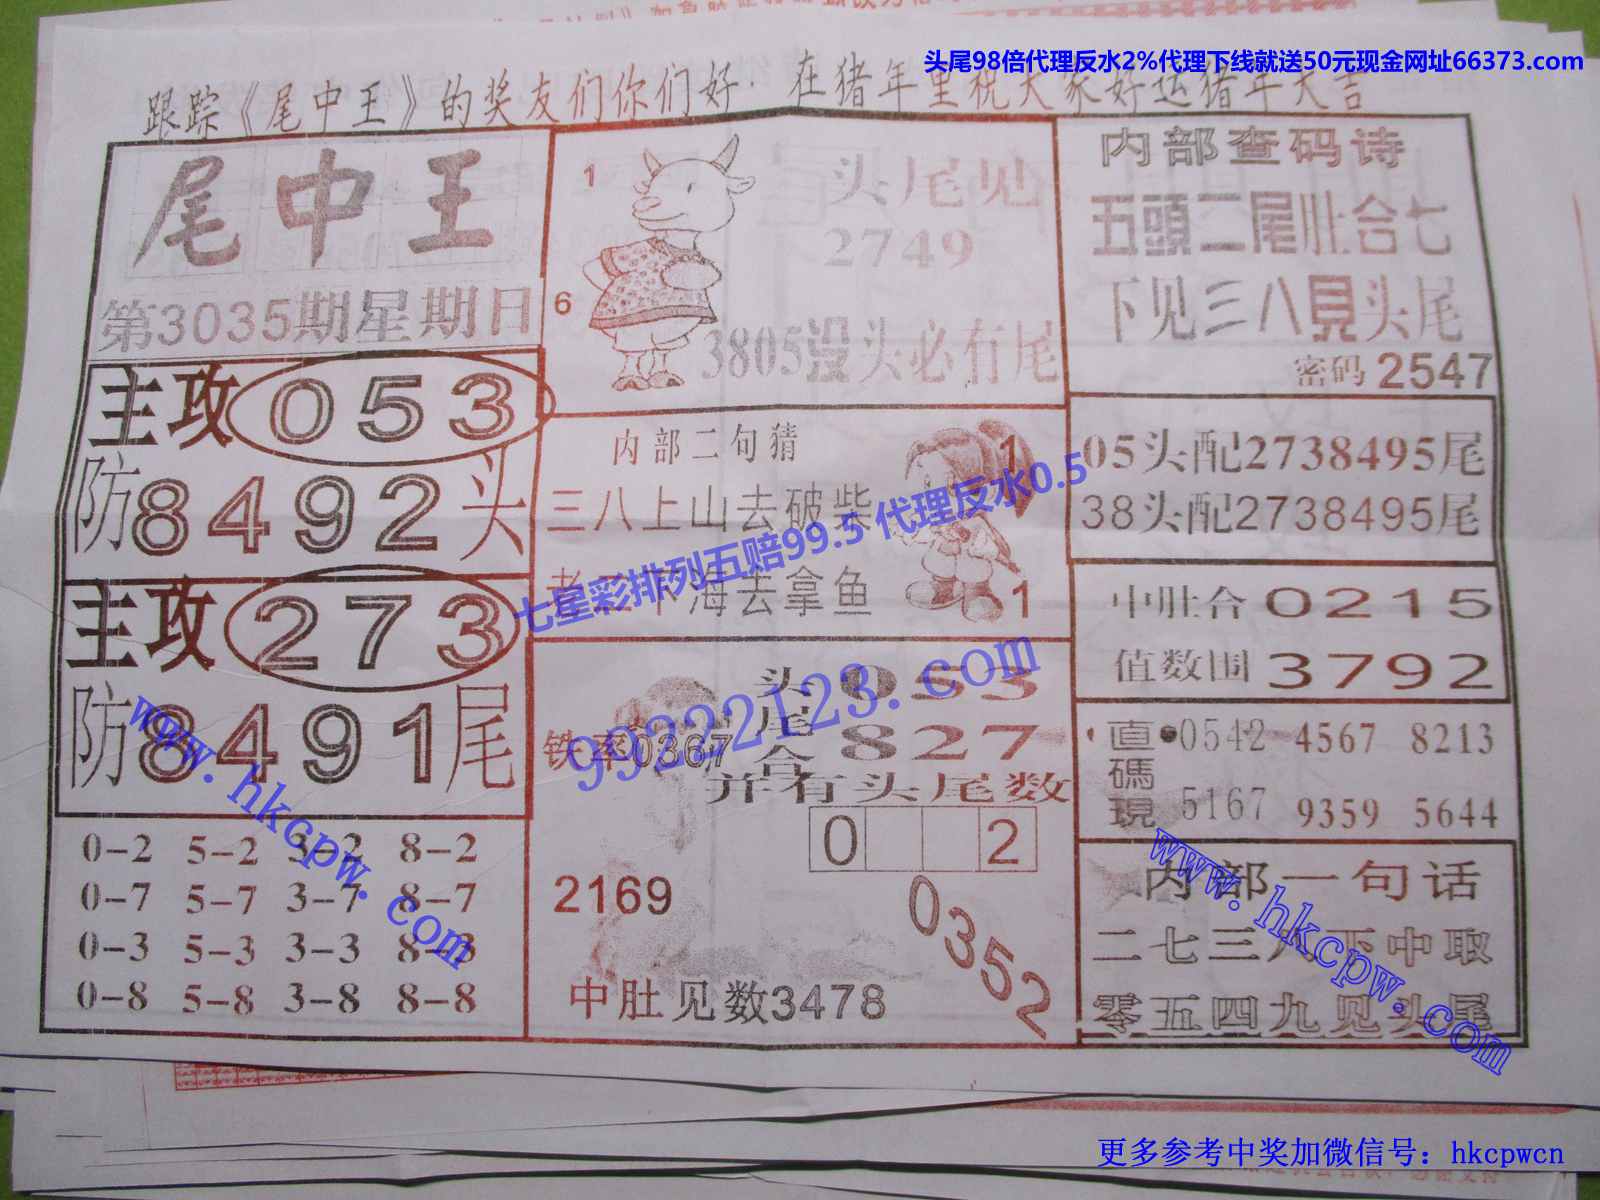 头尾98倍代理反水2%代理下线就送50元现金网址66373.com
跟踪《尾中王》的奖友们你们好·在猪年里祝大家好运猪年大吉
尾中王
第3035期星期日
主攻053
防8492头
主攻273
防8491尾
0-2 5-2 3-2 8-2
0-7 5-7 3-7 8-7
0-3 5-3 3-3 8-3
0-8 5-8 3-8 8-8
1
6
头尾见
2749
3805没头必有尾
内部二句猜
三八上山去破柴
下海去拿鱼
1
1
七星彩排列五赔99.5 代理反水0.5
99222123.com
头尾合
053
827
铁率0367
并有头尾数
0 2
2169
0352
中肚见数3478
内部查码诗
五頭二尾肚合七
下见三八見头尾
密码2547
05头配2738495尾
38头配2738495尾
中肚合0215
值数围3792
直碼現
0542 4567 8213
5167 9359 5644
内部一句话
二七三八下中取
零五四九见头尾
www.hkcpw.com
www.hkcpw.com
更多参考中奖加微信号：hkcpwcn